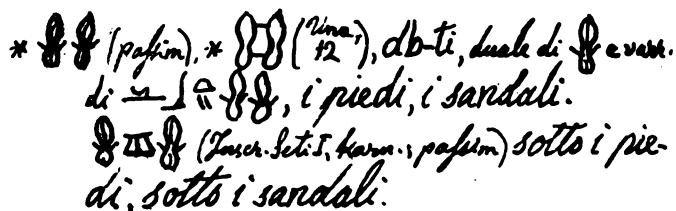 * 𓋸𓋸 (passim), * (Una, 12), db-ti, duale di 𓋸 e varr.
di 𓂝𓃀𓏏𓋸𓋸, i piedi, i sandali.
(Inscr. Seti I, Karn., passim) sotto i pie-
di, sotto i sandali.